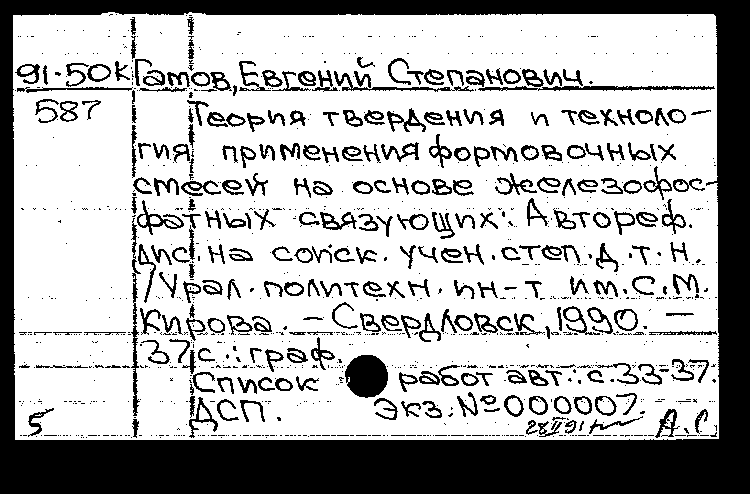 91-50к Гамов, Евгений Степанович.
587 Теория твердения и техноло-
гия применения формовочных
смесей на основе железофос-
фатных связующих: Автореф.
дис. на соиск. учен. степ. д.т.н.
/Урал. политехн. ин-т им. С.М.
Кирова. - Свердловск, 1990. -
37 с.: граф.
Список работ авт.: с. 33-37.
ДСП. Экз. № 000007.
5 28 II 91 А.С